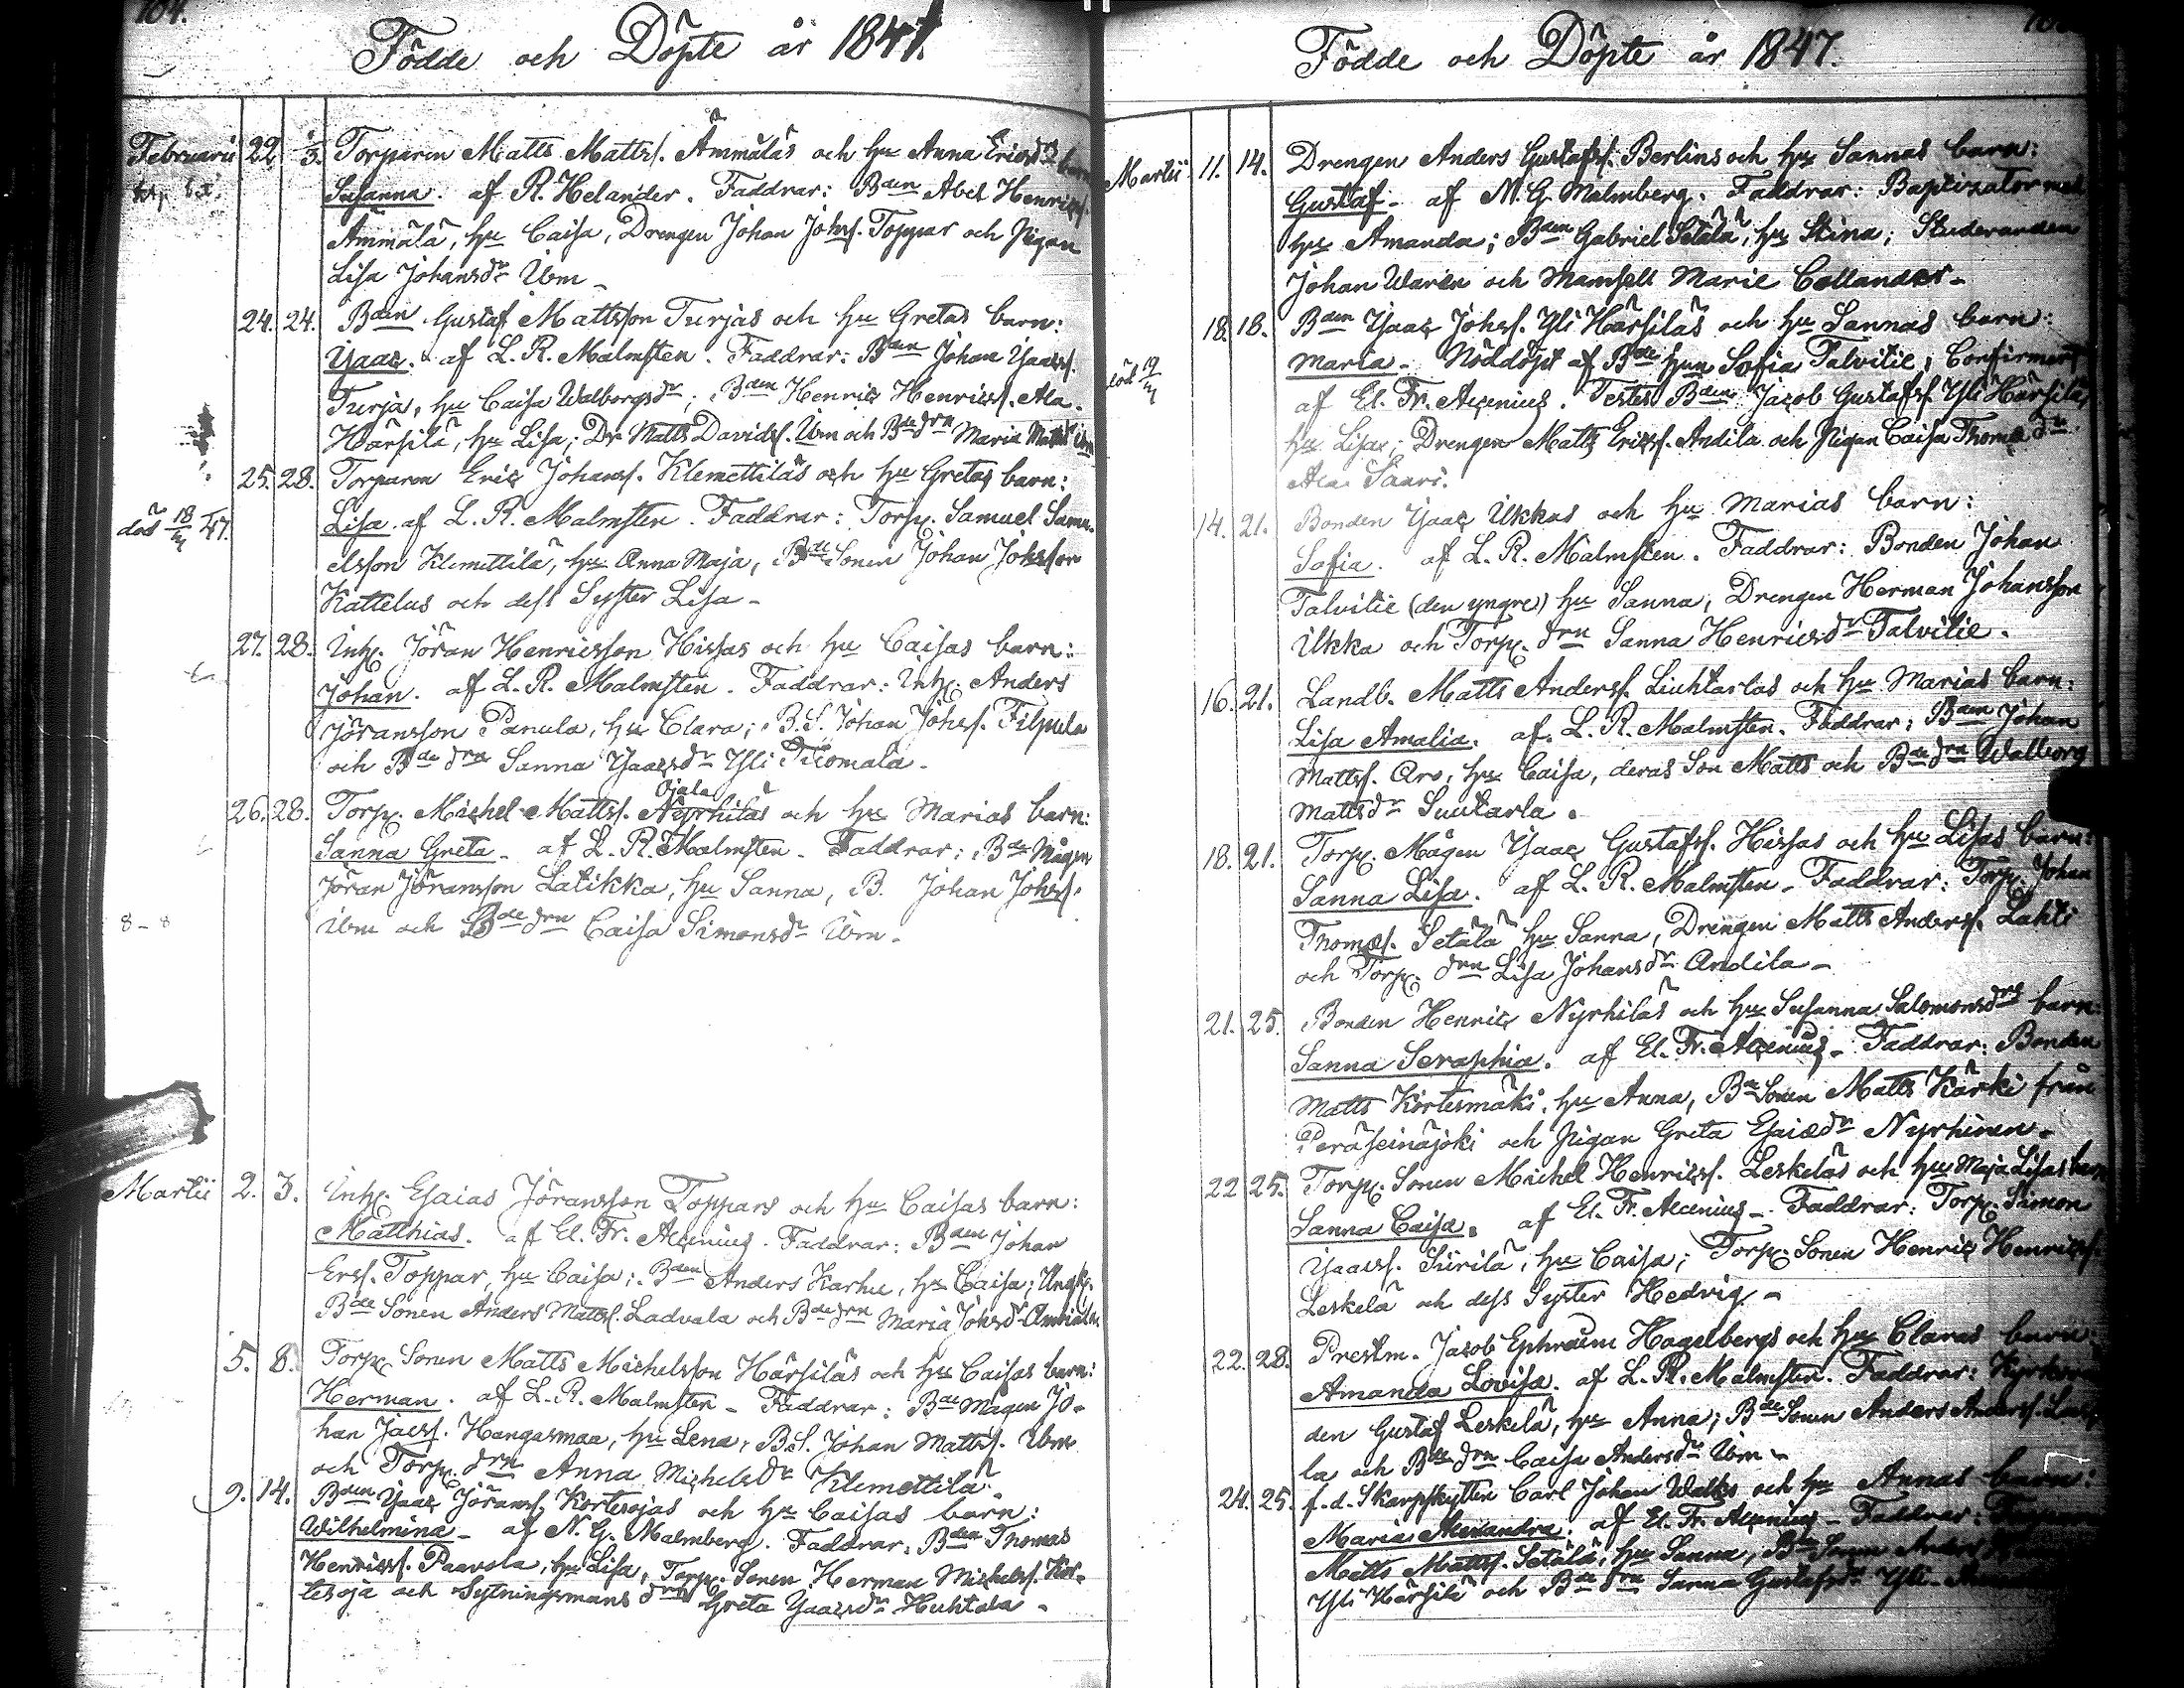 104.
Födde och Döpte år 1847.
Februarii 22 1/3. Torparen Matts Mattss. Ämmäläs och hu Anna Ericsdrs barn
Susanna. af R. Helander. Faddrar: Bden Abel Henricss.
Ämmälä, hu Caisa, Drengen Johan Johss. Toppar och Pigan
Lisa Johansdr Ibm _
24. 24. Bden Gustaf Mattsson Turjas och hu Gretas barn:
Ysaac. af L. R. Malmsten. Faddrar: Bden Johan Ysaacs.
Turja, hu Caisa Walborgsdr; Bden Henric Henricss. Ala.
Härsilä, hu Lisa; Dr Matts Davidss. Ibm och Bde drn Maria Mattsdr Ibm
25. 28. Torparen Eric Johanss. Klemettiläs och hu Gretas barn:
död 18/ 47. Lisa. af L. R. Malmsten. Faddrar: Torp. Samuel Samu-
elsson Klemettilä, hu Anna Maja, Bde Sonen Johan Johsson
Kattelus och dess Syster Lisa _
27. 28. Inh. Jöran Henricsson Hissas och hu Caisas barn:
Johan. af L. R. Malmsten. Faddrar: Inh. Anders
Jöransson Panula, hu Clara; B.S. Johan Johss. Filpula
och Bde drn Sanna Ysaacsdr Yli Tuomala.
Ojala
26. 28. Torp. Michel Mattss. Nyrhiläs och hu Marias barn:
Sanna Greta _ af L. R. Malmsten _ Faddrar: Bde Mågen
Jöran Jöransson Latikka, hu Sanna, B. Johan Johss.
8 - 8 Ibm och Bde drn Caisa Simonsdr Ibm _
Martii 2. 3. Inh. Esaias Jöransson Toppars och hu Caisas barn:
Matthias. af El. Fr. Alcenius. Faddrar: Bden Johan
Erss. Toppar, hu Caisa; Bden Anders Karhu, hu Caisa;
Bde Sonen Anders Mattss. Ladvala och Bde drn Maria Johsdr
5. 8. Torp. Sonen Matts Michelsson Härsiläs och hu Caisas barn:
Herman. af L. R. Malmsten _ Faddrar: Bde Mågen Jo-
han Jacss. Hangasmaa, hu Lena, B.S. Johan Mattss. Ibm
och Torp. drn Anna Michelsdr Klemettilä.
9. 14. Bden Ysaac Jöranss. Kortesojas och hu Caisas barn:
Wilhelmina _ af N. G. Malmberg. Faddrar: Bden Thomas
Henricss. Paavola, hu Lisa, Torp. Sonen Herman Michelss. Kor-
tesoja och Sytningsmans drn Greta Ysaacsdr Huhtala _
Födde och Döpte år 1847.
Martii 11. 14. Drengen Anders Gustafss. Berlins och hu Sannas barn:
Gustaf _ af N. G. Malmberg. Faddrar: Baptizator med
hu Amanda; Bden Gabriel Setälä, hu Stina; Studeranden
Johan Waren och Mamsell Marie Callander _
18. 18. Bden Ysaac Johss. Yli Härsiläs och hu Sannas barn:
Maria _ Nöddöpt af Bde hun Sofia Talvitie; Confirmert
af El. Fr. Alcenius. Testes Bden Jacob Gustafss. Yli Härsilä,
hu Lisa; Drengen Matts Ericss. Andila och Pigan Caisa Thomædr
Ala Saari.
14. 21. Bonden Ysaac Ukkas och hu Marias barn:
Sofia. af L. R. Malmsten. Faddrar: Bonden Johan
Talvitie (den yngre) hu Sanna, Drengen Herman Johansson
Ukka och Torp. drn Sanna Henricsdr Talvitie.
16. 21. Landb. Matts Anderss. Liuhtarlas och hu Marias barn:
Lisa Amalia. af L. R. Malmsten. Faddrar: Bden Johan
Mattss. Aro, hu Caisa, deras Son Matts och Bde drn Walborg
Mattsdr Luutarla.
18. 21. Torp. Mågen Ysaac Gustafss. Hissas och hu Lisas barn:
Sanna Lisa. af L. R. Malmsten _ Faddrar: Torp. Johan
Thomæs. Setälä hu Sanna, Drengen Matts Anderss. Lahti
och Torp. drn Lisa Johansdr Andila _
21. 25. Bonden Henric Nyrhiläs och hu Susanna Salomonsdrs barn:
Sanna Seraphia. af El. Fr. Alcenius _ Faddrar: Bonden
Matts Kortesmäki, hu Anna, Bde Sonen Matts Kärki från
Peräseinäjoki och Pigan Greta Esaiædr Nyrhinen _
22 25. Torp. Sonen Michel Henricss. Leskeläs och hu Maja Lisas barn
Sanna Caisa. af El. Fr. Alcenius _ Faddrar: Torp. Simon
Ysaacss. Siirilä, hu Caisa; Torp. Sonen Henric Henricss.
Leskelä och dess Syster Hedvig _
22. 28. Prestm. Jacob Ephraim Hagelbergs och hu Claras barn
Amanda Lovisa. af L. R. Malmsten. Faddrar:
den Gustaf Leskelä, hu Anna; Bde Sonen Anders Anderss.
la och Bde drn Caisa Andersdr Ibm _
24. 25. f.d. Skarpskytten Carl Johan Walks och hu Annas barn:
Maria Alexandra. af El. Fr. Alcenius _ Faddrar:
Matts Mattss. Setälä, hu Sanna, Bde Sonen Anders
Yli Härsilä och Bde drn Sanna Gustafsdr Yli